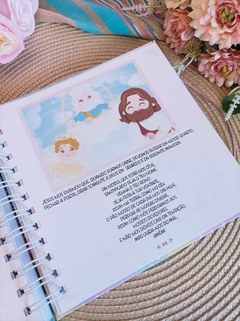 JESUS NOS ENSINOU QUE, QUANDO FORMOS ORAR, DEVEMOS ENTRAR EM NOSSO QUARTO,
FECHAR A PORTA, ORAR SOMENTE A DEUS EM SEGREDO E DA SEGUINTE MANEIRA:
PAI NOSSO, QUE ESTÁS NOS CÉUS,
SANTIFICADO SEJA O TEU NOME.
VENHA O TEU REINO,
SEJA FEITA A TUA VONTADE,
ASSIM NA TERRA COMO NO CÉU.
O PÃO NOSSO DE CADA DIA NOS DAI HOJE.
PERDOA AS NOSSAS DÍVIDAS,
ASSIM COMO NÓS PERDOAMOS
NOSSOS DEVEDORES.
E NÃO NOS DEIXES CAIR EM TENTAÇÃO,
MAS LIVRA-NOS DO MAL.
AMÉM!